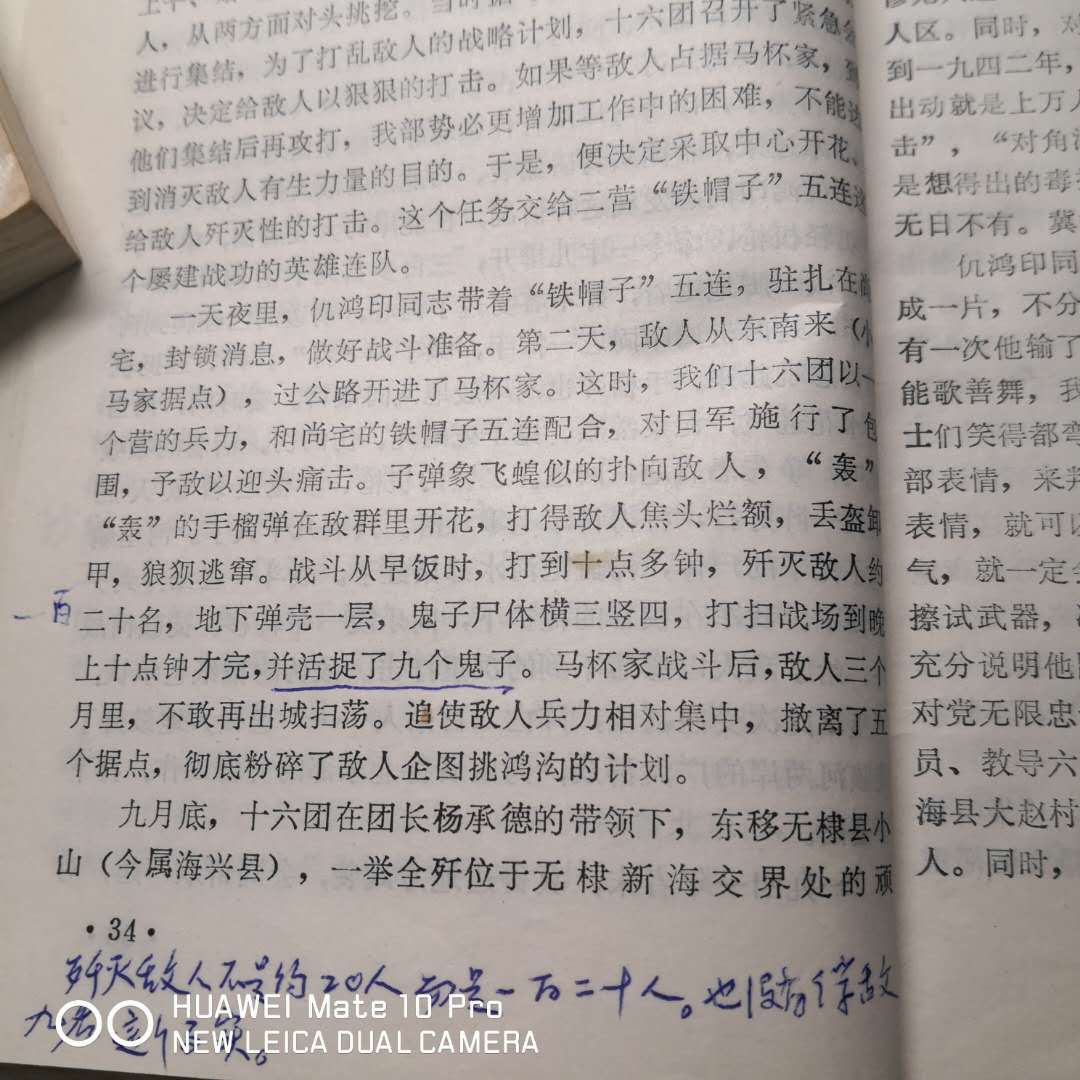 人，从两方面对头挑挖。当时据
进行集结，为了打乱敌人的战略计划，十六团召开了紧急会
议，决定给敌人以狠狠的打击。如果等敌人占据马杯家，到
他们集结后再攻打，我部势必更增加工作中的困难，不能达
到消灭敌人有生力量的目的。于是，便决定采取中心开花、
给敌人歼灭性的打击。这个任务交给二营“铁帽子”五连这
个屡建战功的英雄连队。
一天夜里，仇鸿印同志带着“铁帽子”五连，驻扎在尚
宅，封锁消息，做好战斗准备。第二天，敌人从东南来（小
马家据点），过公路开进了马杯家。这时，我们十六团以一
个营的兵力，和尚宅的铁帽子五连配合，对日军施行了包
围，予敌以迎头痛击。子弹象飞蝗似的扑向敌人，“轰”
“轰”的手榴弹在敌群里开花，打得敌人焦头烂额，丢盔卸
甲，狼狈逃窜。战斗从早饭时，打到十点多钟，歼灭敌人约
一百
二十名，地下弹壳一层，鬼子尸体横三竖四，打扫战场到晚
上十点钟才完，并活捉了九个鬼子。马杯家战斗后，敌人三个
月里，不敢再出城扫荡。迫使敌人兵力相对集中，撤离了五
个据点，彻底粉碎了敌人企图挑鸿沟的计划。
九月底，十六团在团长杨承德的带领下，东移无棣县小
山（今属海兴县），一举全歼位于无棣新海交界处的顽
·34·
歼灭敌人不是约20人而是一百二十人。也没有俘敌
九名这个事实。
HUAWEI Mate 10 Pro
NEW LEICA DUAL CAMERA
人区。同时，对
到一九四二年，
出动就是上万人
击”，“对角
是想得出的毒
无日不有。冀
仇鸿印同
成一片，不分
有一次他输了
能歌善舞，我
士们笑得都弯
部表情，来判
表情，就可以
气，就一定会
擦试武器，
充分说明他
对党无限忠
员、教导六
海县大赵村
人。同时，